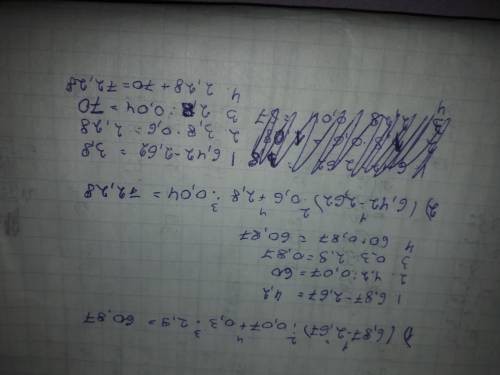 1) (6,87-2,67) : 0,07 + 0,3 · 2,9 = 60,87
1 6,87-2,67 = 4,2
2. 4,2 : 0,07 = 60
3 0,3 · 2,9 = 0,87
4 60+0,87 = 60,87
2) (6,42-2,62) · 0,6 + 2,8 : 0,04 = 72,28
1 6,42-2,62 = 3,8
2 3,8 · 0,6 = 2,28
3 2,8 : 0,04 = 70
4. 2,28 + 70 = 72,28